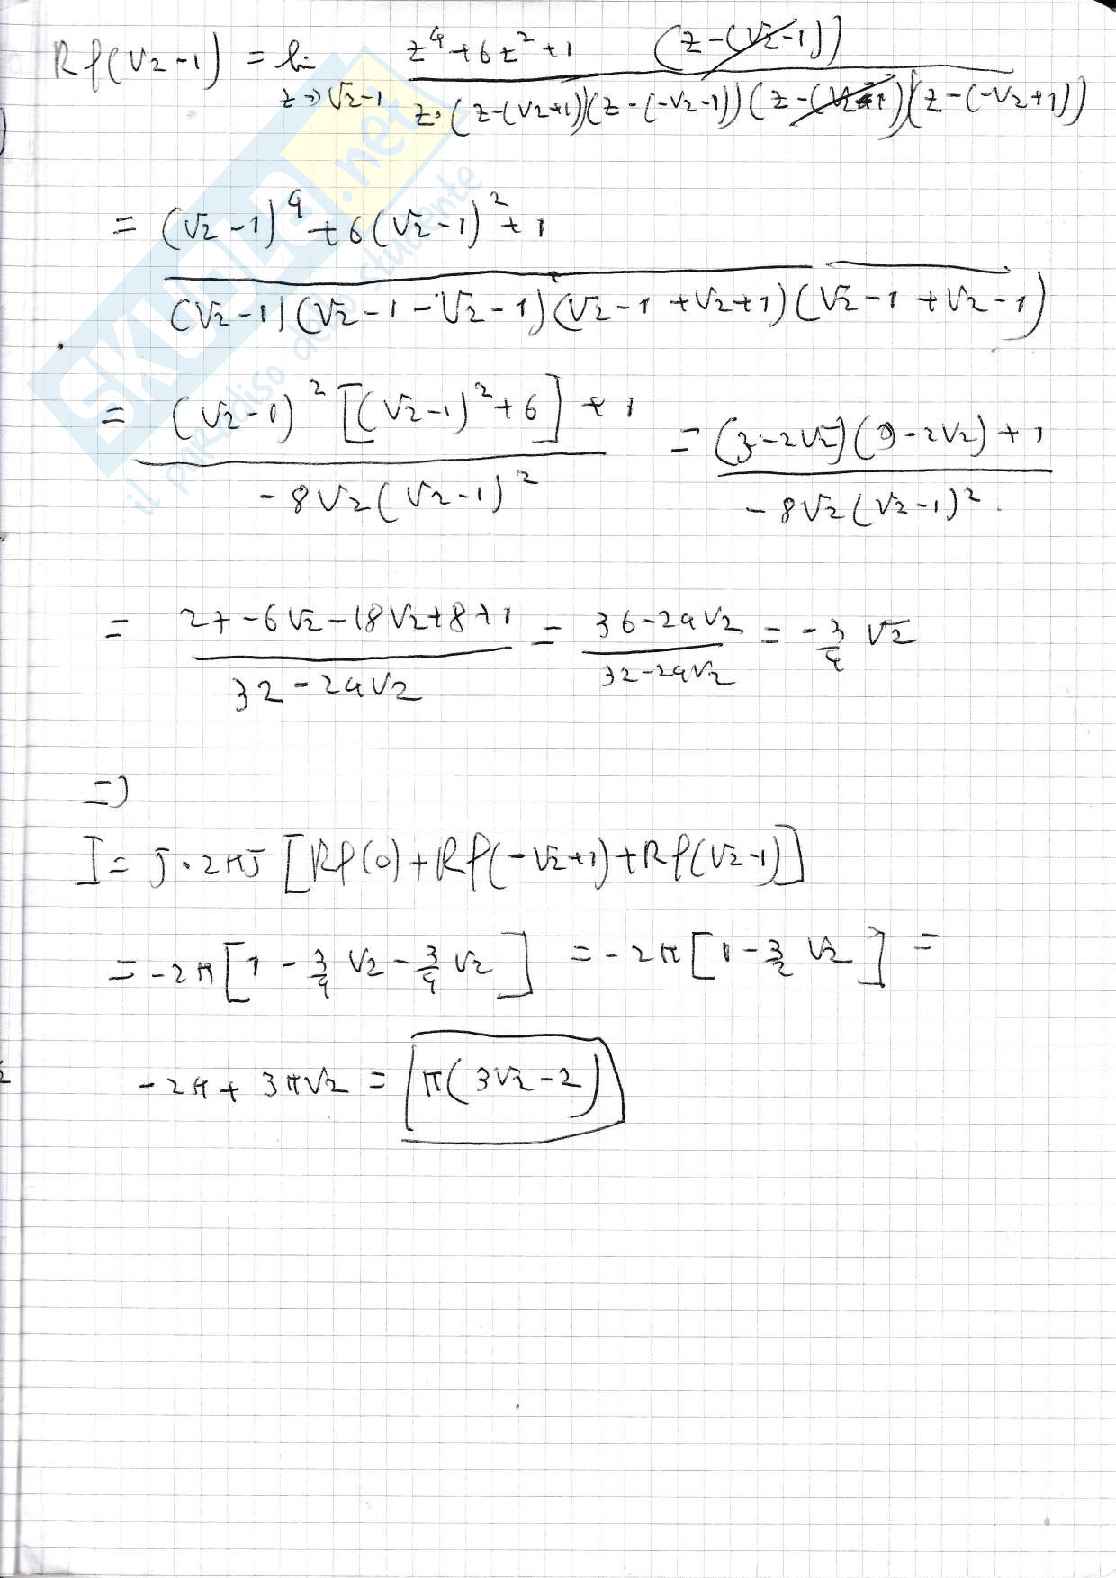 Rf(√2-1) = lim z→√2-1 z⁴+6z²+1 (z-(√2-1)) / z·(z-(√2+1))(z-(-√2-1))(z-(√2-1))(z-(-√2+1))
= (√2-1)⁴+6(√2-1)²+1 / (√2-1)(√2-1-√2-1)(√2-1+√2+1)(√2-1+√2-1)
= (√2-1)²[(√2-1)²+6]+1 / -8√2(√2-1)² = (3-2√2)(9-2√2)+1 / -8√2(√2-1)²
= 27-6√2-18√2+8+1 / 32-24√2 = 36-24√2 / 32-24√2 = -3/4 √2
=>
I = j·2πj [Rf(0)+Rf(-√2+1)+Rf(√2-1)]
= -2π[1-3/4 √2-3/4 √2] = -2π[1-3/2 √2] =
-2π+3π√2 = π(3√2-2)
SKUOLA.net
il paradiso dello studente